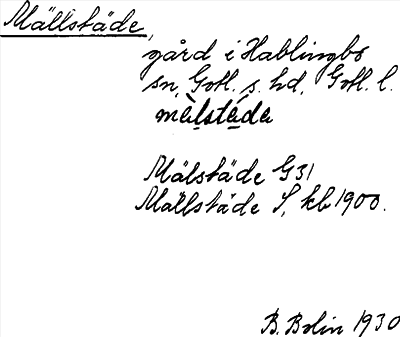 Mällstäde,
gård i Hablingbo
sn, Gotl. s. hd, Gotl. l.
mä̀lstǻda
Mälstäde G31
Mällstäde S, kb 1900.
B. Bolin 1930